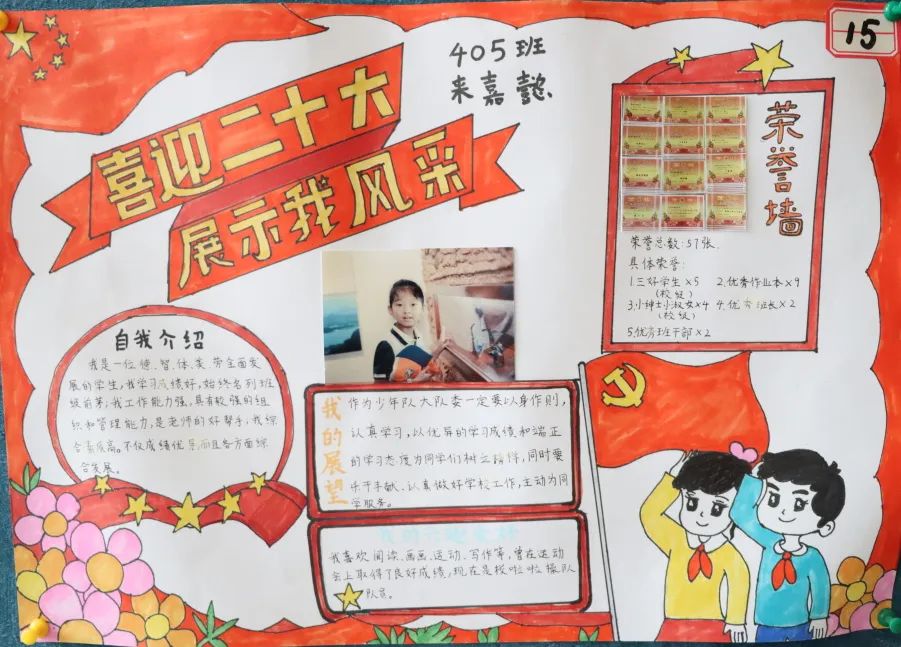 15
405班
来嘉懿
喜迎二十大
展示我风采
荣誉墙
荣誉总数:57张.
具体荣誉:
1.三好学生×5 2.优秀作业本×9
(校级)
3.小绅士小淑女×4 4.优秀班长×2
(校级)
5.优秀班干部×2
自我介绍
我是一位德、智、体、美、劳全面发
展的学生,我学习成绩好,始终名列班
级前茅;我工作能力强,具有较强的组
织和管理能力,是老师的好帮手;我综
合素质高。不仅成绩优异而且各方面综
合发展。
我的展望
作为少年队大队委一定要以身作则,
认真学习,以优异的学习成绩和端正
的学习态度为同学们树立榜样,同时要
乐于奉献、认真做好学校工作,主动为同
学服务。
我的兴趣爱好
我喜欢阅读、画画、运动、写作等,曾在运动
会上取得了良好成绩,现在是校啦啦操队
队员。